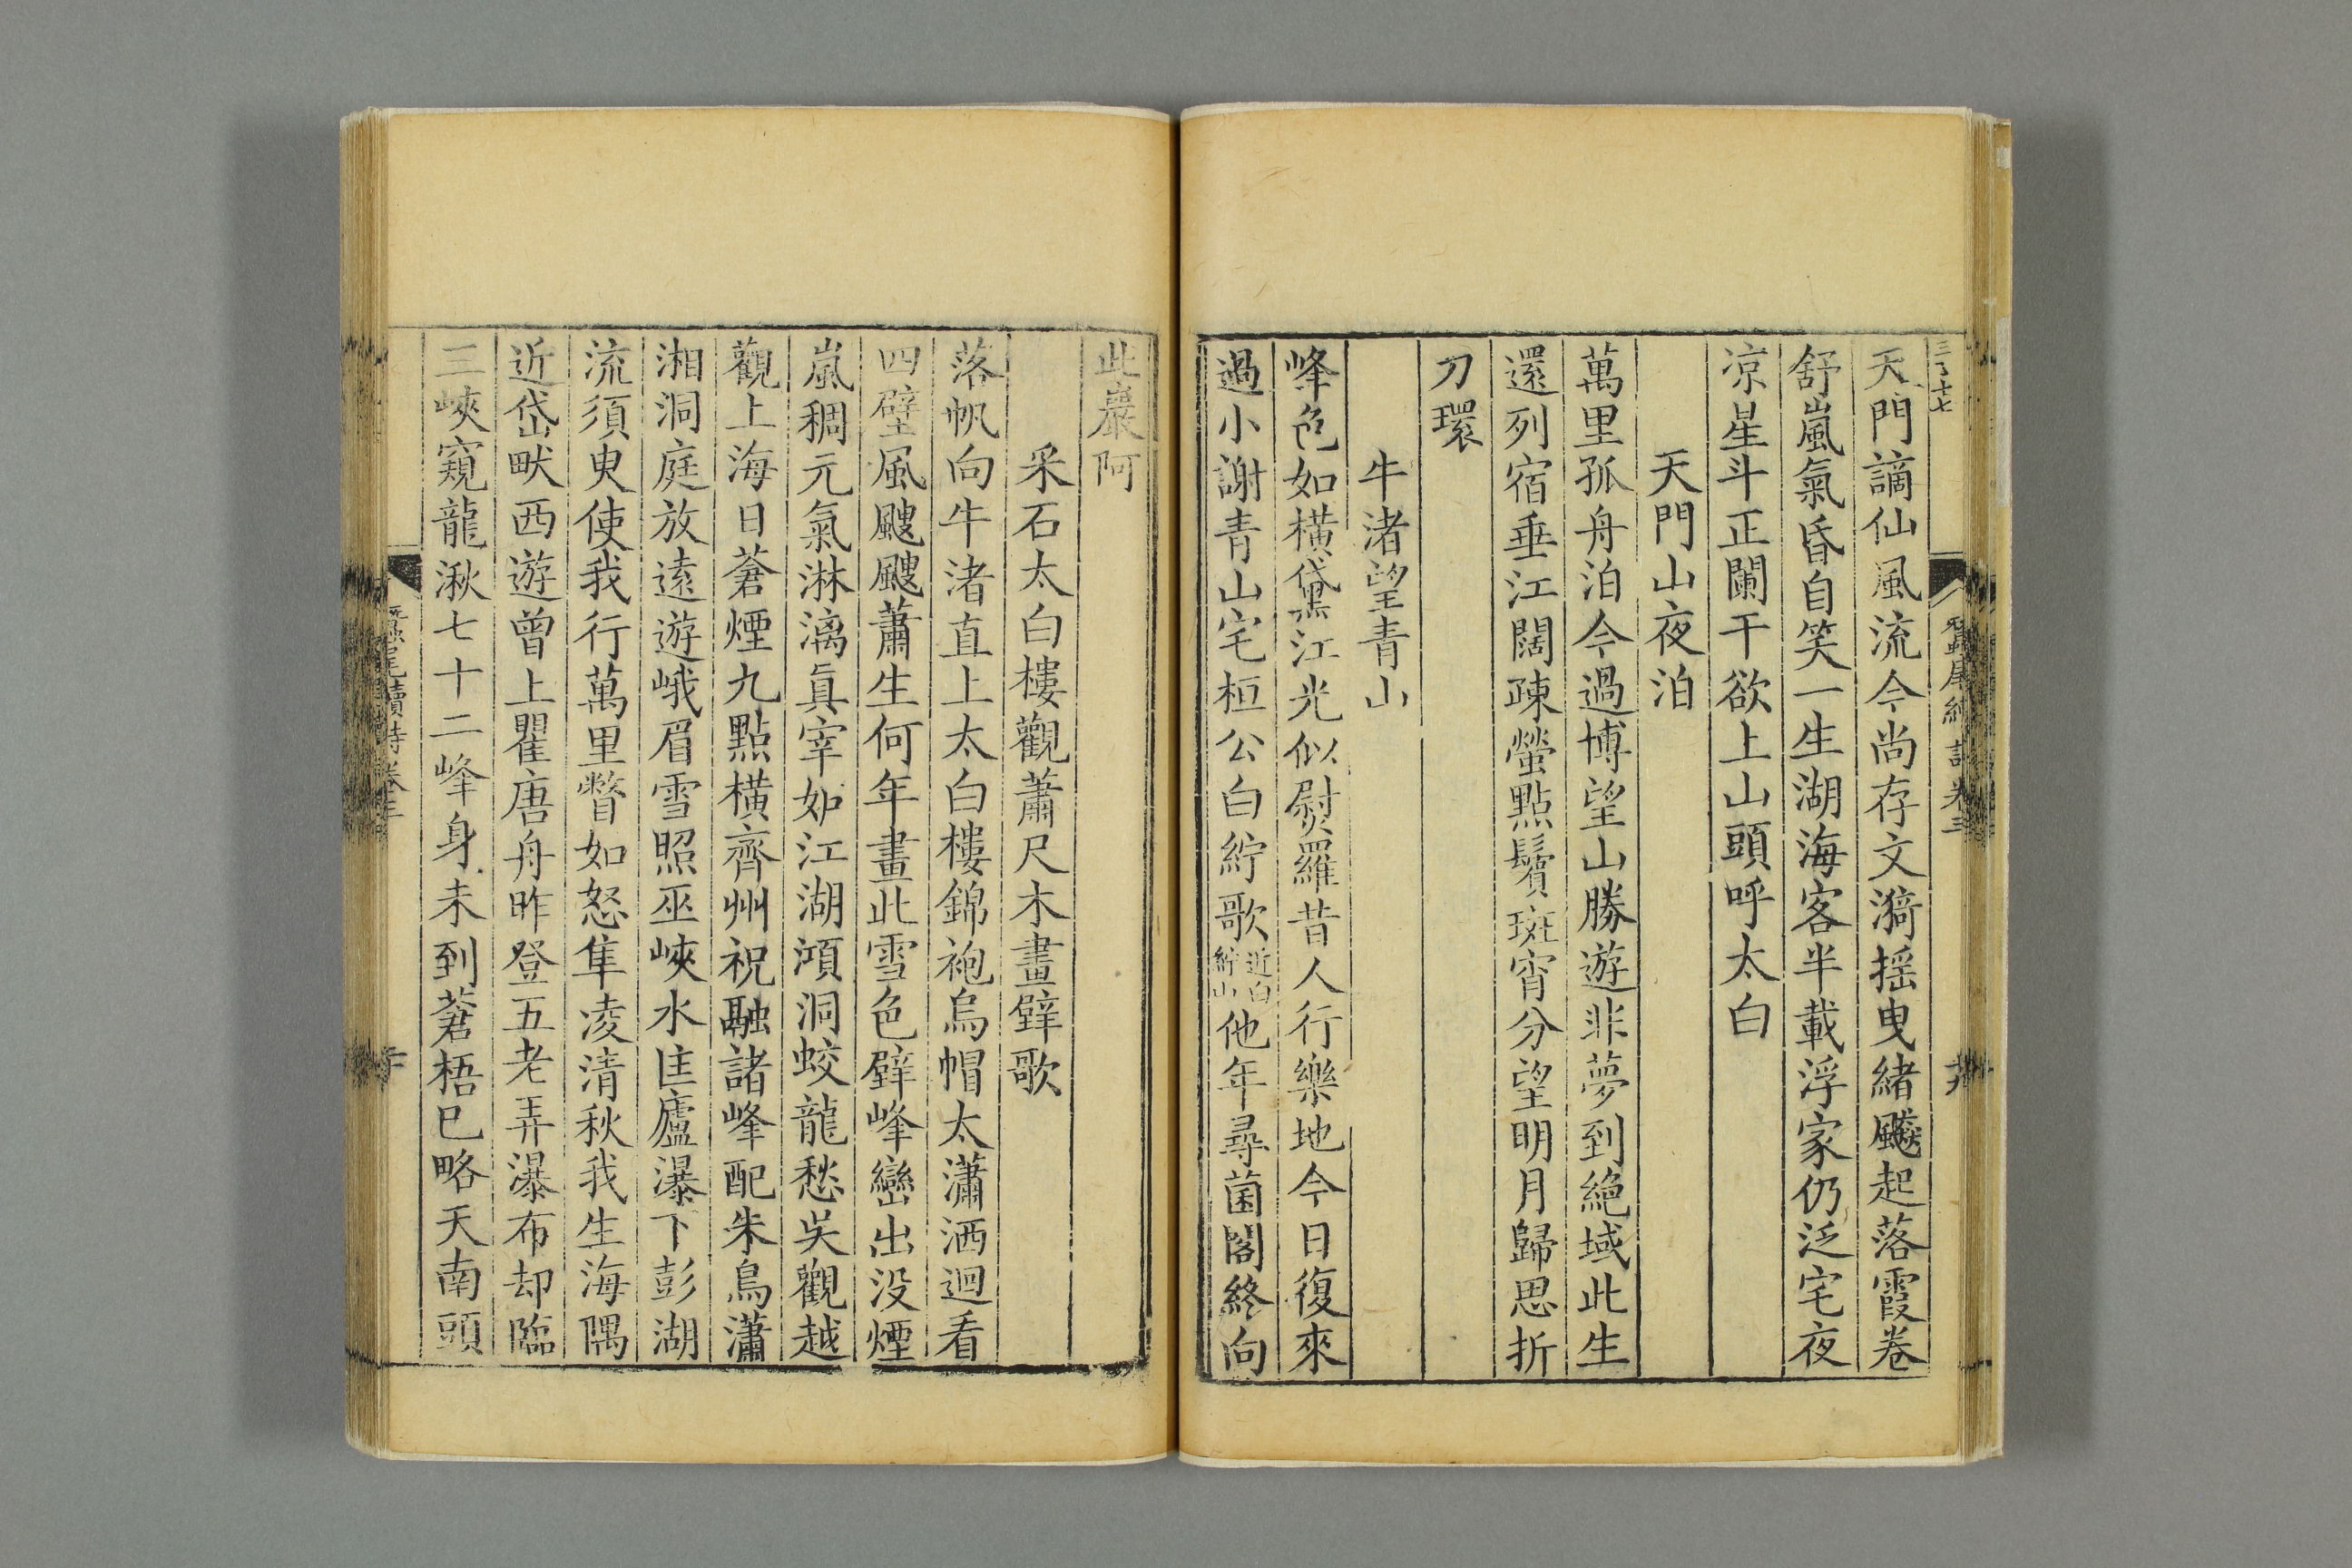 天門謫仙風流今尚存文漪摇曳緒飈起落霞卷
舒嵐氣昏自笑一生湖海客半載浮家仍泛宅夜
凉星斗正闌干欲上山頭呼太白
天門山夜泊
萬里孤舟泊今過博望山勝遊非夢到絕域此生
還列宿垂江闊疎螢點鬢斑宵分望明月歸思折
刀環
牛渚望青山
峰色如橫黛江光似熨羅昔人行樂地今日復來
過小謝青山宅桓公白紵歌近白紵山他年尋菌閣終向
此巖阿
采石太白樓觀蕭尺木畫壁歌
落帆向牛渚直上太白樓錦袍烏帽太瀟洒迴看
四壁風颼颼蕭生何年畫此雪色壁峰巒出没煙
嵐稠元氣淋漓眞宰妒江湖澒洞蛟龍愁吳觀越
觀上海日蒼煙九點橫齊州祝融諸峰配朱鳥瀟
湘洞庭放遠遊峨眉雪照巫峽水匡廬瀑下彭湖
流須臾使我行萬里瞥如怒隼凌清秋我生海隅
近岱畎西遊曾上瞿唐舟昨登五老弄瀑布却臨
三峽窺龍湫七十二峰身未到蒼梧巳略天南頭
蠶尾續詩卷三